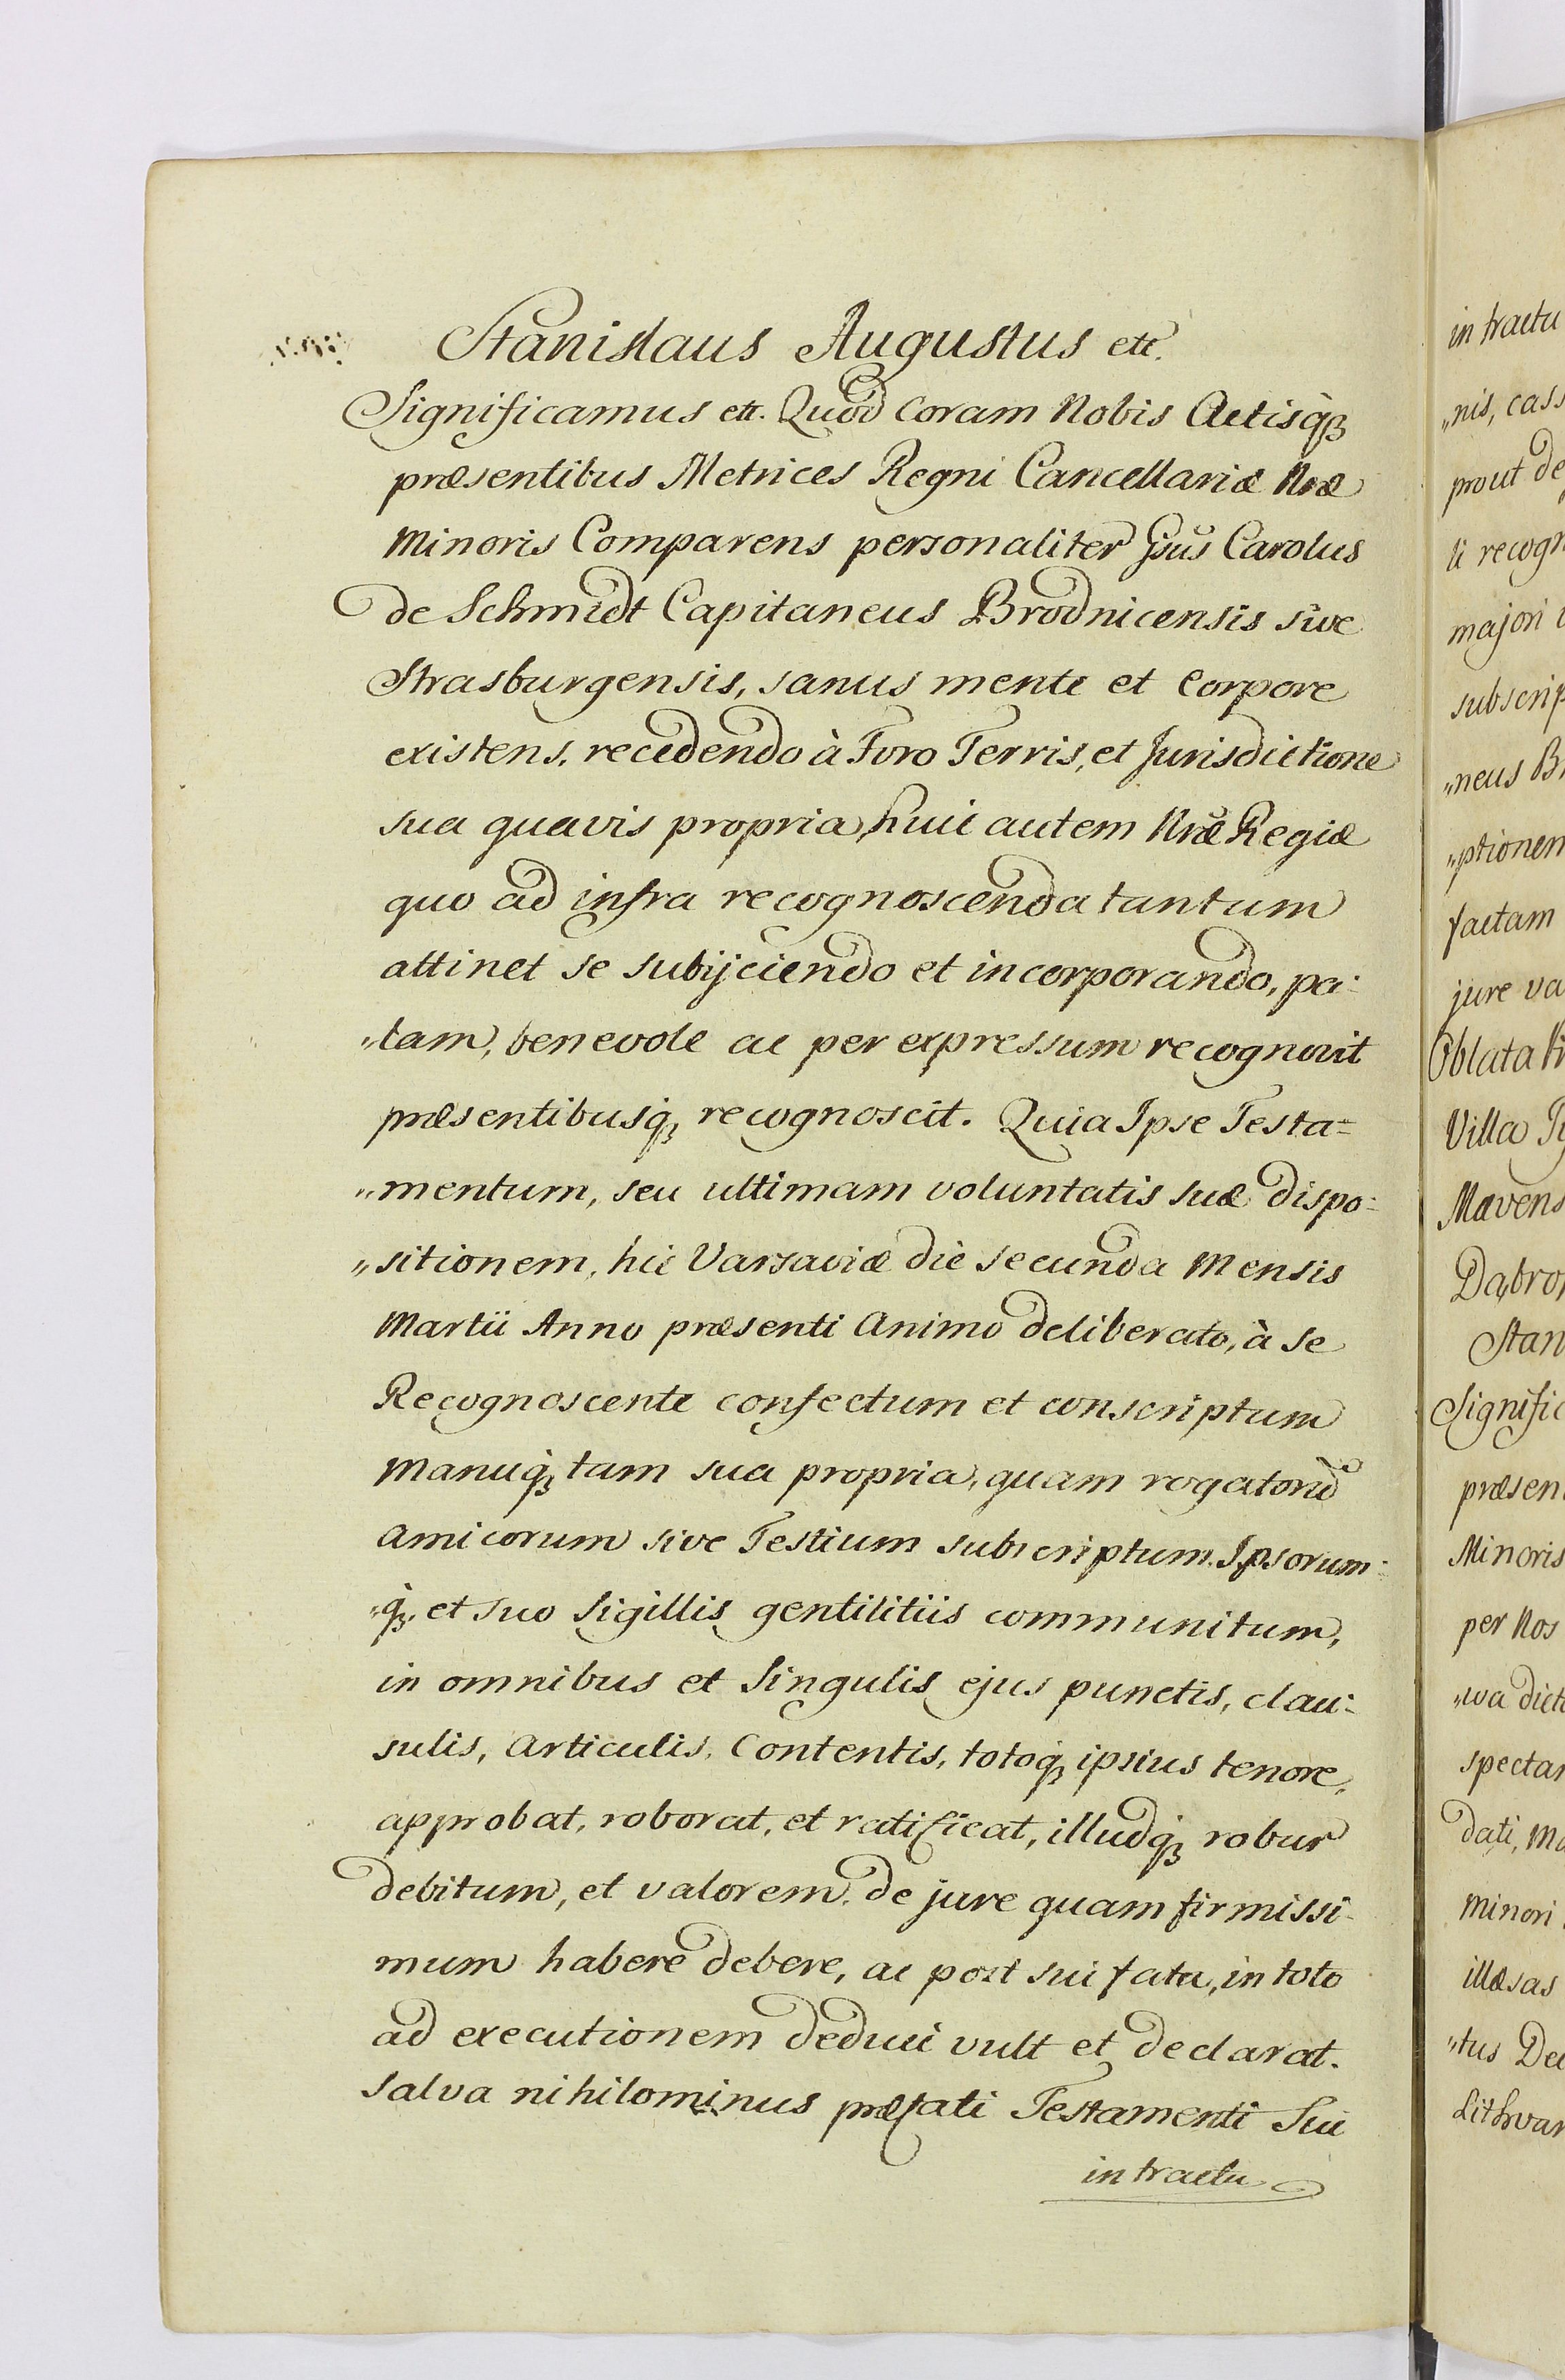 Stanislaus Augustus ett.
Significamus ett. Quod Coram Nobis Actisq̇ꝫ
præsentibus Metrices Regni Cancellariæ Nræ
Minoris Comparens personaliter Gsus Carolus
de Schmidt Capitaneus Brodnicensis sive
Strasburgensis, sanus mente et Corpore
existens, recedendo à Foro Terris, et Jurisdictione
sua quavis propria, huic autem Nræ Regiæ
quo ad infra recognoscenda tantum
attinet se subijciendo et incorporando, pa:
„lam, benevole ac per expressum recognovit
præsentibusq̇ꝫ recognoscit. Quia Ipse Testa=
„mentum, seu ultimam voluntatis suæ dispo:
„sitionem, hic Varsaviæ die secunda Mensis
Martii Anno præsenti Animo deliberato, à se
Recognoscente confectum et conscriptum
Manuq̇ꝫ tam sua propria, quam rogatorū
Amicorum sive Testium subscriptum. Ipsorum:
„q̇ꝫ, et suo Sigillis gentilitiis communitum,
in omnibus et Singulis ejus punctis, clau:
sulis, Articulis, Contentis, totoq̇ꝫ ipsius tenore,
approbat, roborat, et ratificat, illudq̇ꝫ robur
debitum, et valorem, de jure quam firmissi-
mum habere debere, ac post sui fata, in toto
ad executionem deduci vult et declarat.
Salva nihilominus præfati Testamenti Sui
in tractu
in tractu
„nis, cass
prout de
li recogn
majori
subscrip
„neus Br
„ptionem
factam
jure va
Oblata
Villa
Mavens
Dąbro
Stan
Signific
præsen
Minoris
per Nos
„wa dict
spectan
dati, Ma
Minori
illæsas
„tus Dec
Lithvan